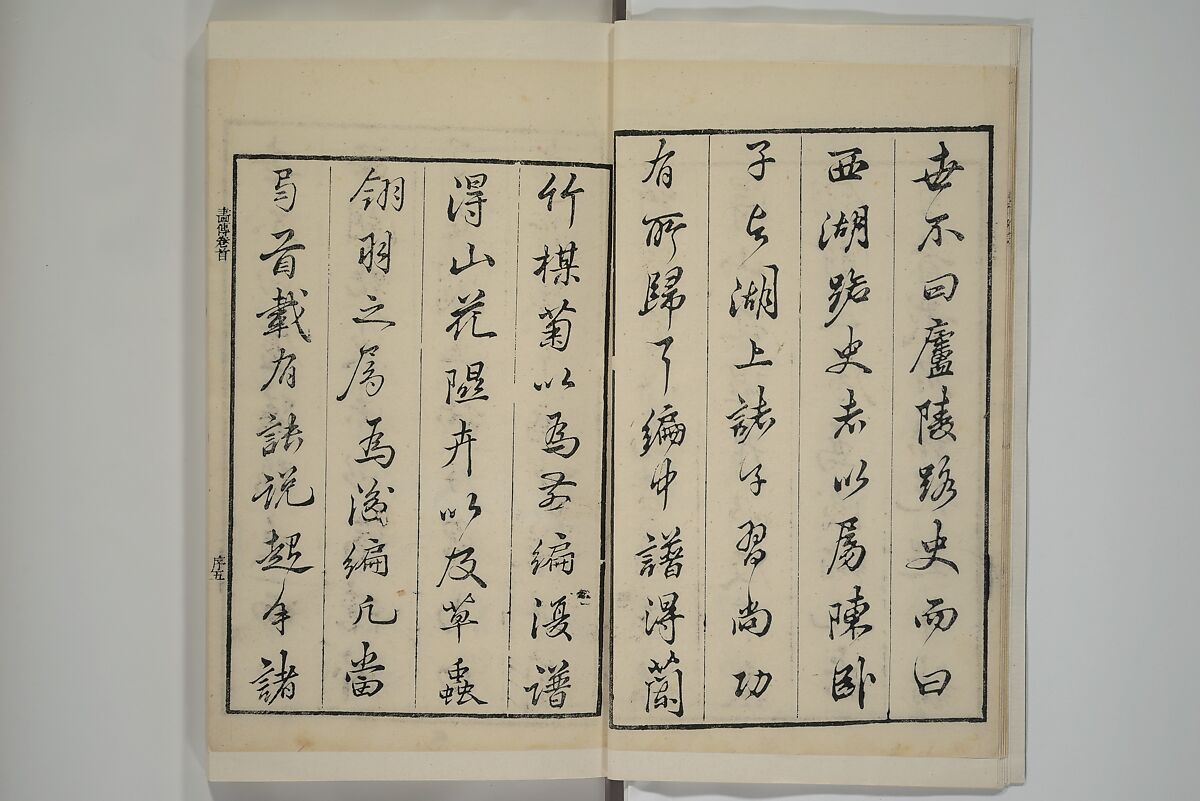 世不曰廬陵路史而曰
西湖路史者以屬陳卧
子與湖上諸子習尚功
有所歸耳編中譜得蘭
竹楳菊以為前編復譜
得山花隰卉以及草蟲
翎羽之屬為編凡當
首載有訣説起手諸
畫傳卷首
序五